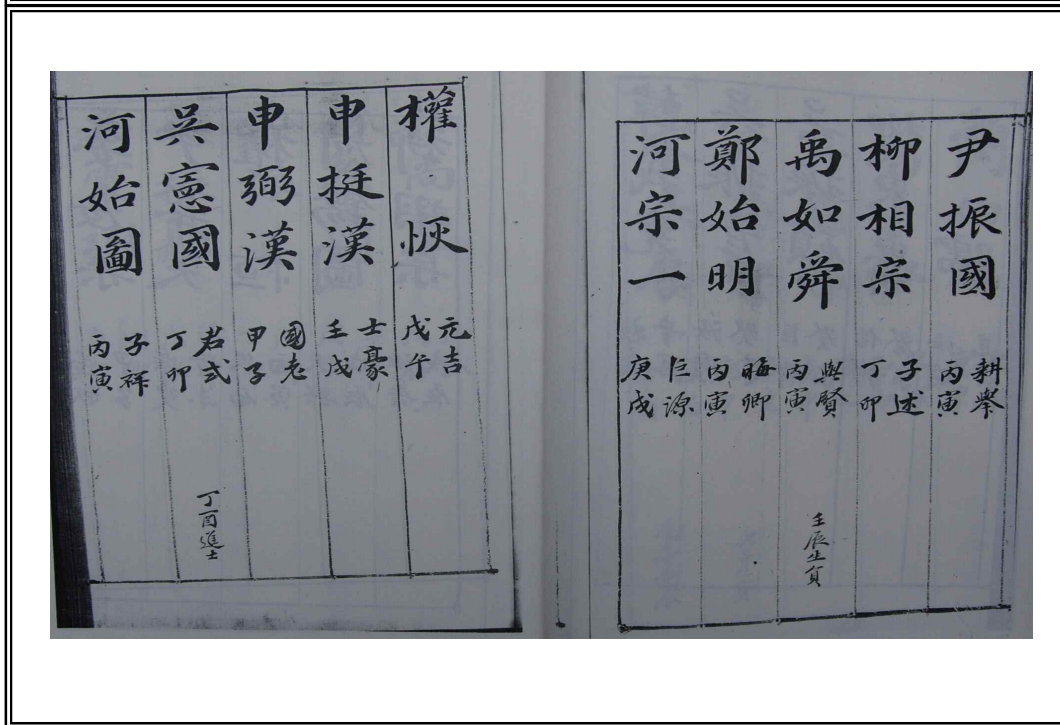 尹振國
耕擧
丙寅
柳相宗
子述
丁卯
禹如舜
興賢
丙寅
壬辰生員
鄭始明
晦卿
丙寅
河宗一
巨源
庚戌
權恢
元吉
戊午
申挺漢
士豪
壬戌
申弼漢
國老
甲子
吳憲國
君式
丁卯
丁酉進士
河始圖
子祥
丙寅